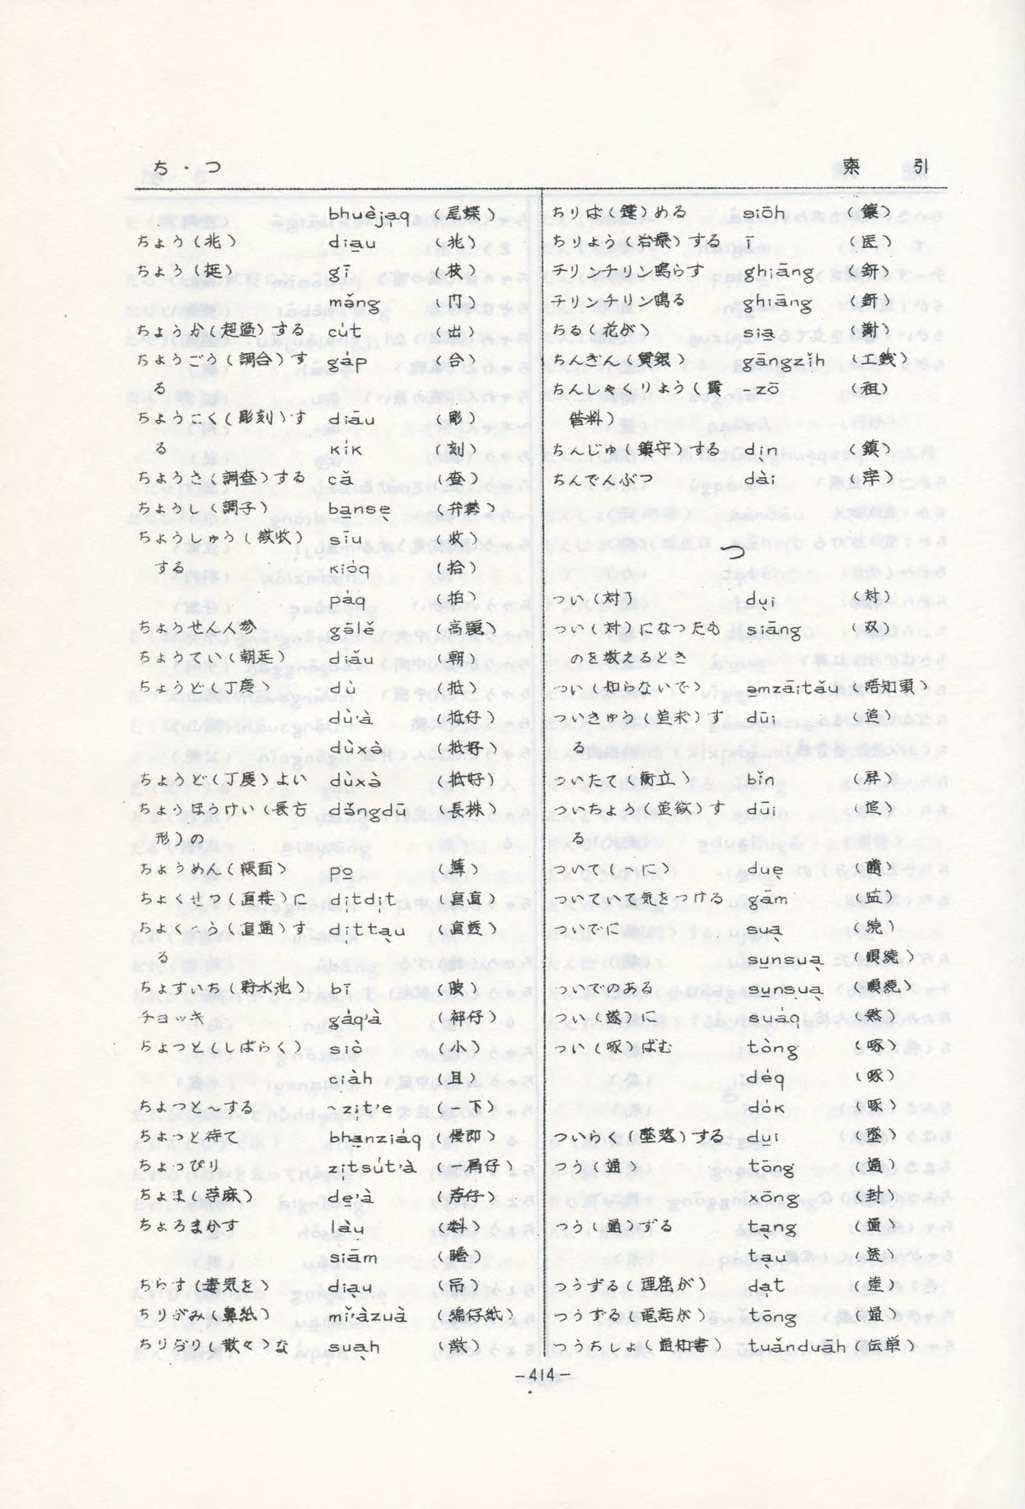 ち・つ　索引
bhuèja̤q （尾蝶）
ちょう（兆） dia̤u （兆）
ちょう（挺） gī （枝）
mǎng （门）
ちょうか（超過）する cu̍t （出）
ちょうごう（調合）す ga̍p （合）
る
ちょうこく（彫刻）す diāu （彫）
る kı̍k （刻）
ちょうさ（調査）する cā （查）
ちょうし（調子） ba̤nse̤ （弁勢）
ちょうしゅう（徴收） sīu （收）
する kio̍q （拾）
pa̍q （拍）
ちょうせん人参 gālě （高麗）
ちょうてい（朝廷） diǎu （朝）
ちょうど（丁度） dù （抵）
dù'à （抵仔）
dùxà （抵好）
ちょうど（丁度）よい dùxà （抵好）
ちょうほうけい（長方 dǎngdū （長株）
形）の
ちょうめん（帳面） po̤ （簿）
ちょくせつ（直接）に di̤tdi̤t （直直）
ちょくつう（直通）す di̤tta̤u （直透）
る
ちょすいち（貯水池） bī （陂）
チョッキ ga̍q'à （袷仔）
ちょっと（しばらく） siò （小）
ciàh （且）
ちょっと～する ～zi̤t'e （一下）
ちょっと待て bha̤nzia̍q （慢即）
ちょっぴり zi̤tsu̍t'à （一屑仔）
ちょま（苧麻） de̤'à （苧仔）
ちょろまかす làu
siām
ちらす（毒気を） dia̤u （吊）
ちりがみ（鼻紙） mǐ'àzuà （綿仔紙）
ちりぢり（散々）な sua̤h （散）
ちりば（鏤）める siōh （鑲）
ちりょう（治療）する ī （医）
チリンチリン鳴らす ghiāng （鈃）
チリンチリン鳴る ghiāng （鈃）
ちる（花が） sia̤ （謝）
ちんぎん（賃銀） gāngzǐh （工銭）
ちんしゃくりょう（賃 -zō （租）
借料）
ちんじゅ（鎮守）する di̤n （鎮）
ちんでんぶつ dài （滓）
つ
つい（対） dṳi （対）
つい（対）になったも siāng （双）
のを数えるとき
つい（知らないで） a̤mzāitǎu （唔知頭）
ついきゅう（追求）す dūi （追）
る
ついたて（衝立） bǐn （屏）
ついちょう（追徴）す dūi （追）
る
ついて（・に） due̤
ついていて気をつける gām （監）
ついでに sua̤ （続）
sṳnsua̤ （順続）
ついでのある sṳnsua̤ （順続）
つい（遂）に sua̍q （煞）
つい（啄）ばむ tòng （啄）
de̍q （啄）
do̍k （啄）
ついらく（墜落）する dṳi （墜）
つう（通） tōng （通）
xōng （封）
つう（通）ずる ta̤ng （通）
ta̤u （透）
つうずる（理屈が） da̤t （達）
つうずる（電話が） tōng （通）
つうちしょ（通知書） tuǎnduāh （伝単）
-414-